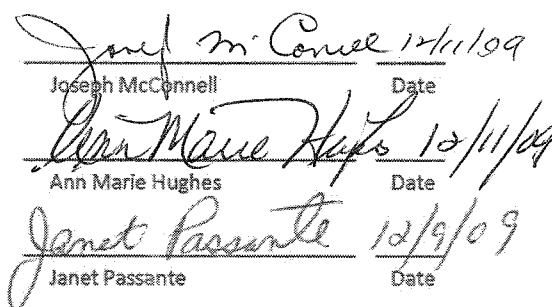 Josef McConnell 12/11/09
Joseph McConnell Date
Ann Marie Hughes 12/11/09
Ann Marie Hughes Date
Janet Passante 12/9/09
Janet Passante Date